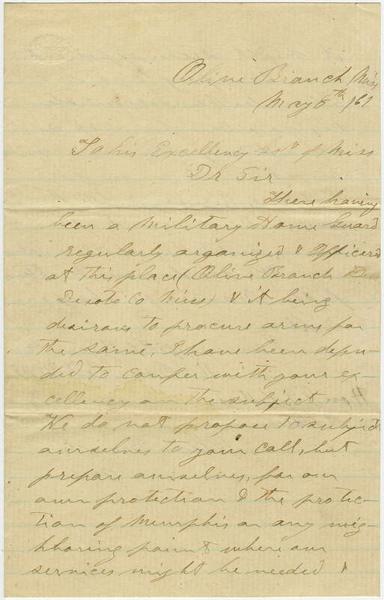 Olive Branch Miss
May 6th /61
To his Excellency Gov of Miss
Dr Sir
There having
been a Military Home Guard
regularly organized & officered
at this place (Olive Branch
Desoto Co Miss) & it being
desirous to procure arms for
the same, I have been depu-
ded to confer with your ex-
cellency on the subject
We do not propose to subject
ourselves to your call, but
prepare ourselves, for our
own protection & the protec-
tion of Memphis or any nig-
hboring point where our
services might be needed &